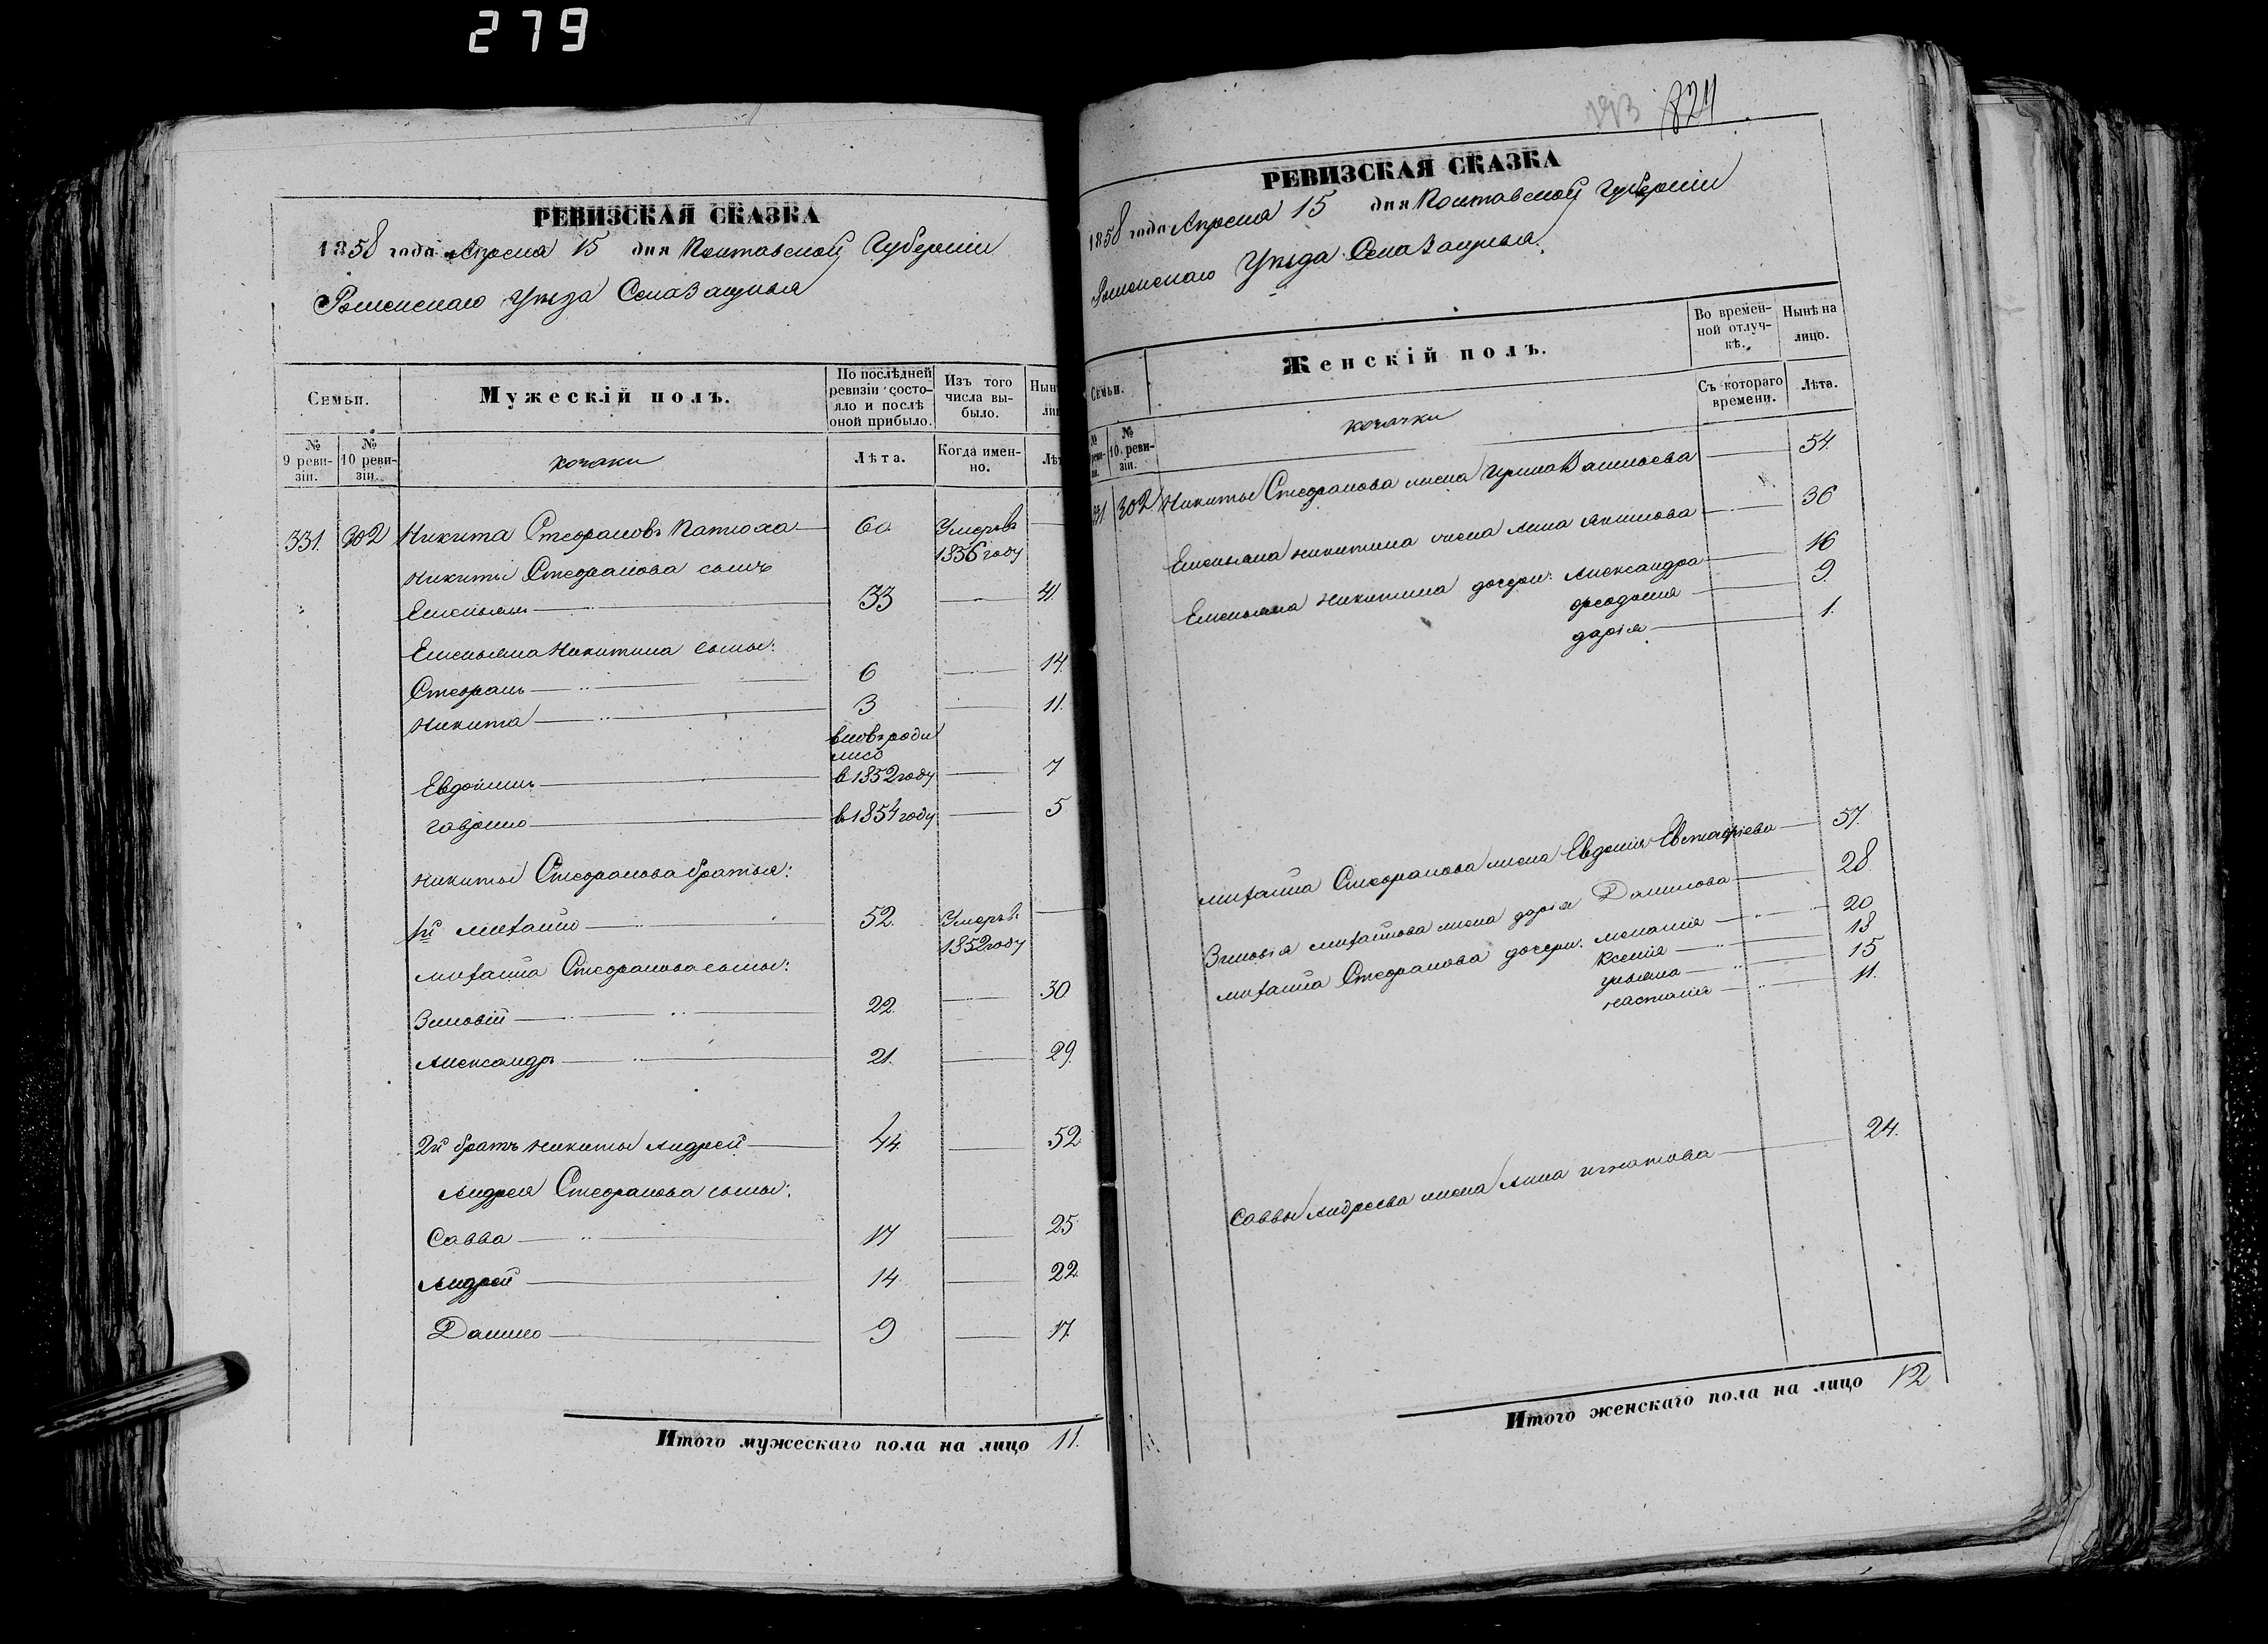 279
РЕВИЗСКАЯ СКАЗКА
1858 года Апреля 15 дня Полтавской Губерніи
Роменскаго Уѣзда Села Защылья
Семьи.
Мужескій полъ.
По послѣдней ревизіи состояло и послѣ оной прибыло.
Изъ того числа выбыло.
Нынѣ
ли
№ 9 ревизіи.
№ 10 ревизіи.
козаки
Лѣта.
Когда именно.
Лѣт
331. 302 Никита Стефановъ Патюха 60 Умеръ въ 1856 году
Никиты Стефанова сынъ
Емельянъ 33 41.
Емельяна Никитина сыны:
Стефанъ 6 14.
Никита 3 11.
вновь роди
лисъ
Евдокимъ в 1852 году 7
Гаврило в 1854 году 5
Никиты Стефанова братья:
1й Михайло 52. Умеръ в 1852 году
Михайла Стефанова сыны:
Зиновій 22. 30
Александръ 21. 29.
2й братъ Никиты Андрей 44. 52
Андрея Стефанова сыны:
Савва 17 25
Андрей 14 22.
Данило 9 17.
Итого мужескаго пола на лицо 11.
824
РЕВИЗСКАЯ СКАЗКА
1858 года Апреля 15 дня Полтавской Губерніи
Роменскаго Уѣзда Села Защылья.
Семьи.
Женскій полъ.
Во временной отлучкѣ.
Нынѣ на лицо.
№ реви-зіи.
№ 10 ревизіи.
козачки
Съ котораго времени.
Лѣта.
331 302 Никиты Стефанова жена Ирина Васильева 54.
Емельяна Никитина жена Анна Акимова 36
Емельяна Никитина дочери: Александра 16
Феодосия 9
Дарія 1.
Михайла Стефанова жена Евдокія Евстафіева 57.
Зиновія Михайлова жена Дарія Данилова 28
Михайла Стефанова дочери: Меланія 20
Ксенія 18
Ульяна 15
Настасія 11.
Саввы Андреева жена Анна Игнатова 24.
Итого женскаго пола на лицо 12